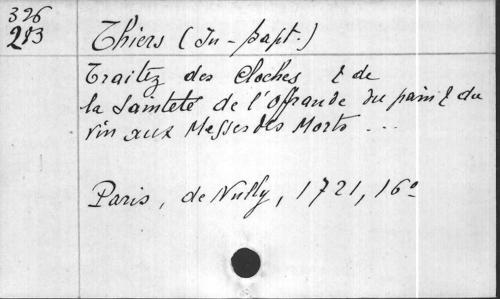 326
283
Thiers (Jn-bapt.)
Traitez des Cloches & de
la Sainteté de l'Offrande du pain & du
vin aux Messes des Morts ...
Paris, de Nully, 1721, 16°